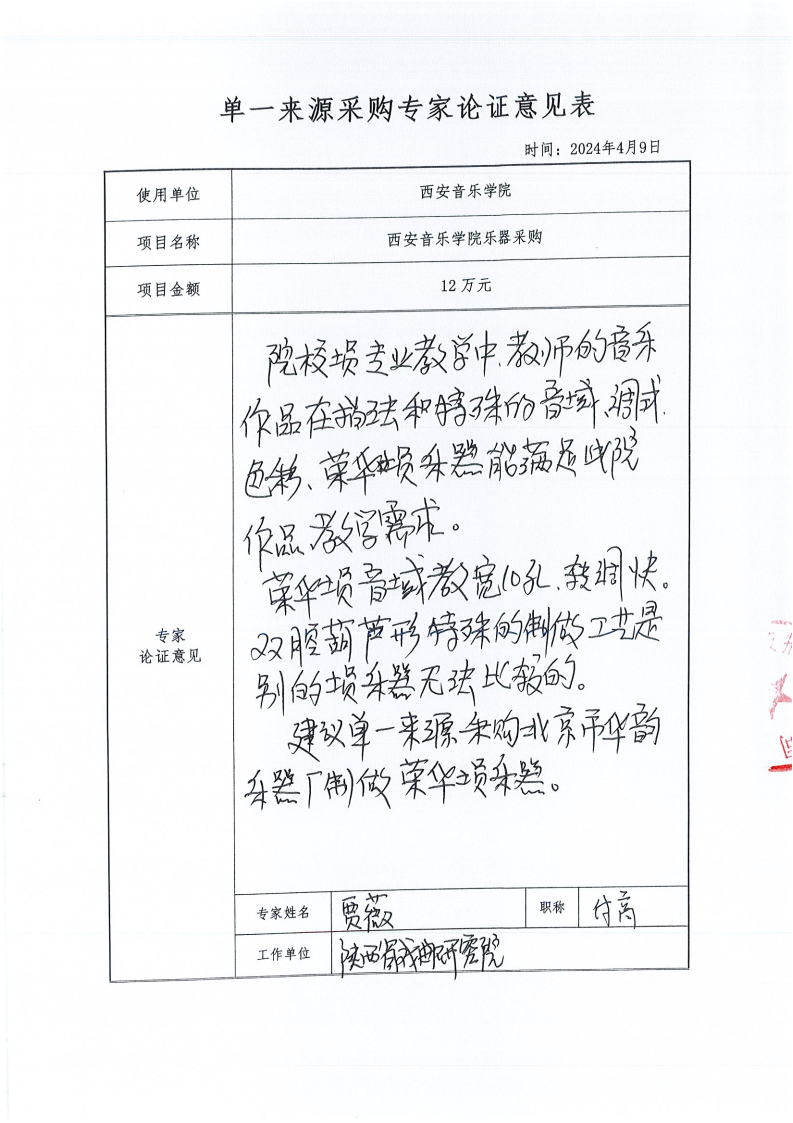 单一来源采购专家论证意见表
时间：2024年4月9日
使用单位 西安音乐学院
项目名称 西安音乐学院乐器采购
项目金额 12万元
专家
论证意见
院校埙专业教学中、教师的音乐
作品在指法和特殊的音域、调式
色彩、荣华埙乐器能满足此院
作品、教学需求。
荣华埙音域教宽10孔、转调快。
双腔葫芦形特殊的制做工艺是
别的埙乐器无法比较的。
建议单一来源采购北京市华韵
乐器厂制做荣华埙乐器。
专家姓名 贾薇 职称 付高
工作单位 陕西省戏曲研究院